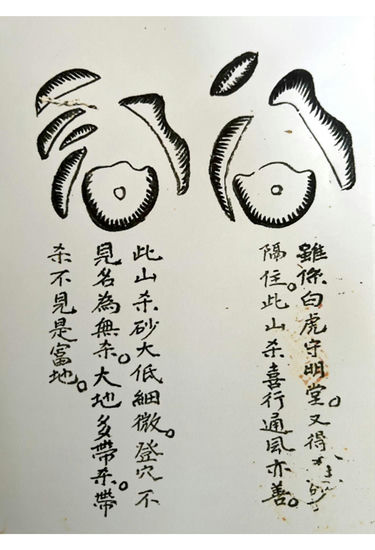 雖係白虎守明堂。又得
隔住。此山杀喜行通風亦善。
此山杀砂大低細微。登穴不
見名為無杀。大地多帶杀。帶
杀不見是富地。